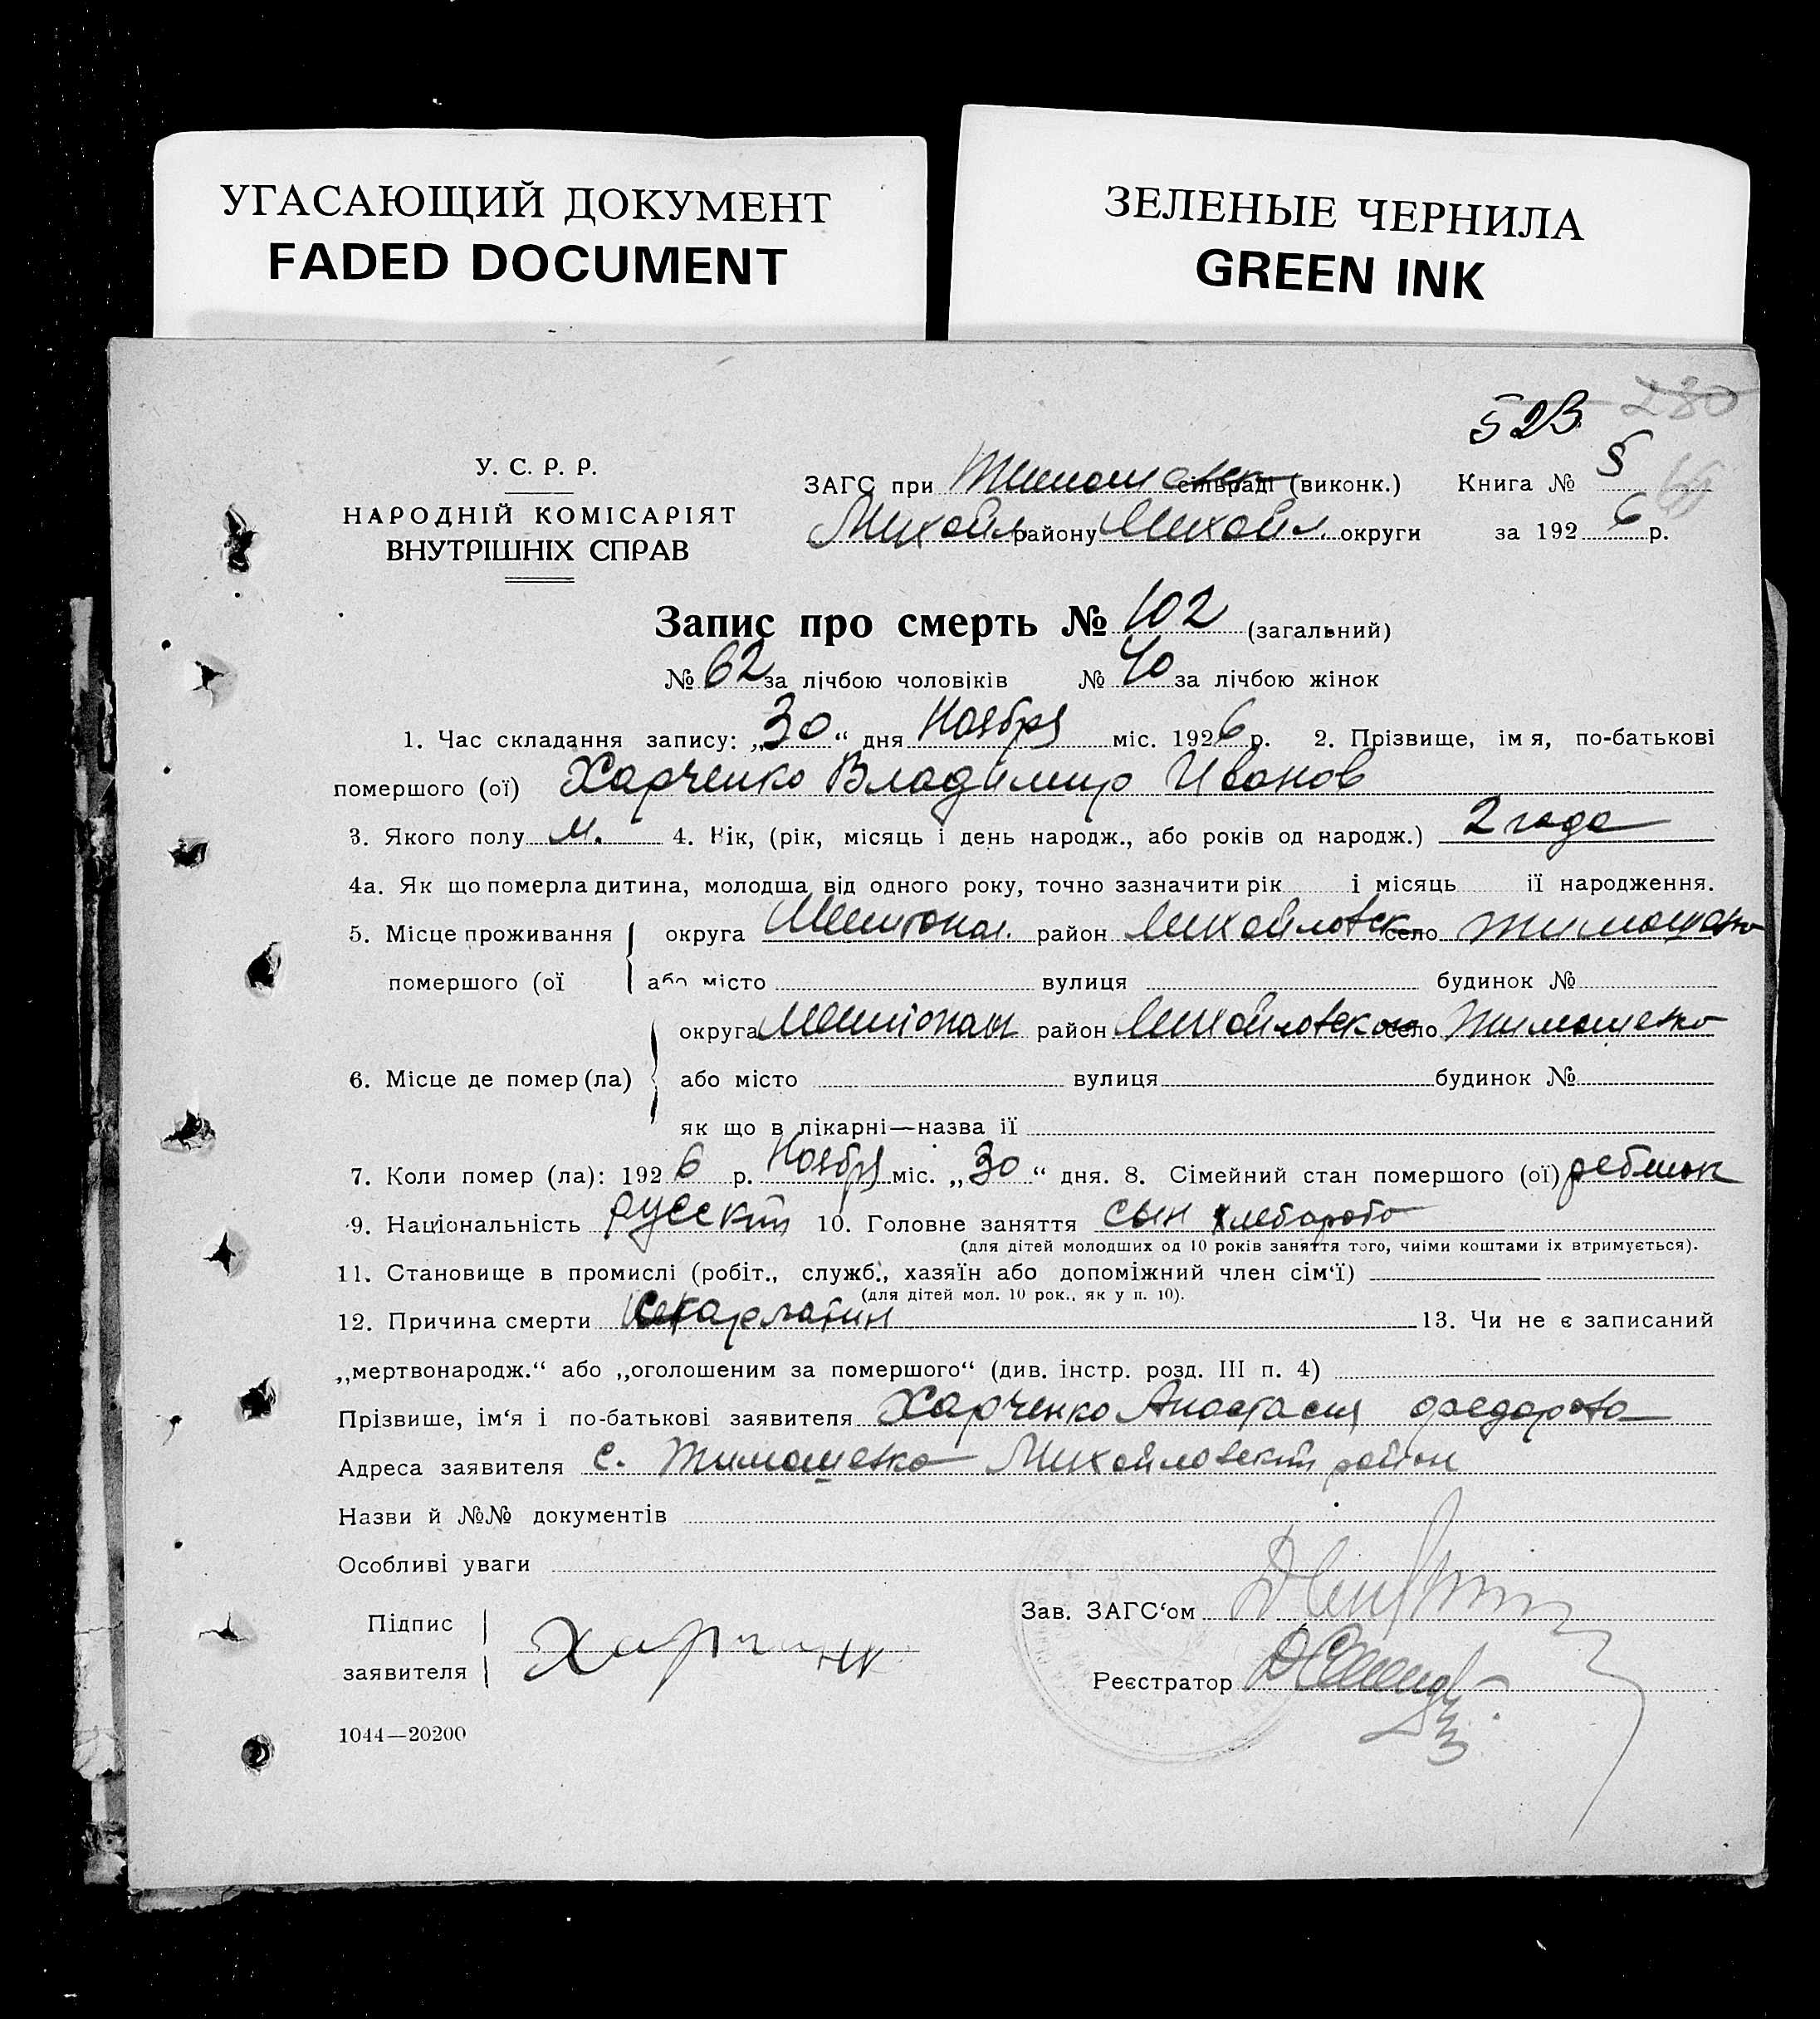 УГАСАЮЩИЙ ДОКУМЕНТ
FADED DOCUMENT
ЗЕЛЕНЫЕ ЧЕРНИЛА
GREEN INK
230
523
У. С. Р. Р.
НАРОДНІЙ КОМІСАРІЯТ
ВНУТРІШНІХ СПРАВ
ЗАГС при Тимошевск сільраді (виконк.) Книга № 5
Михайл. району Михайл. округи за 1926 р.
Запис про смерть № 102 (загальний)
№ 62 за лічбою чоловіків № 40 за лічбою жінок
1. Час складання запису: „30“ дня Ноября міс. 1926 р. 2. Прізвище, ім я, по-батькові
помершого (ої) Харченко Владимир Иванов
3. Якого полу м. 4. Вік, (рік, місяць і день народж., або років од народж.) 2 года
4а. Як що померла дитина, молодша від одного року, точно зазначити рік і місяць її народження.
5. Місце проживання округа Мелитопол. район Михайловск село Тимошевка
помершого (ої або місто вулиця будинок №
округа Мелітопол район Михайловском село Тимошевка
6. Місце де помер (ла) або місто вулиця будинок №
як що в лікарні—назва її
7. Коли помер (ла): 1926 р. Ноября міс. „30“ дня. 8. Сімейний стан помершого (ої) ребенок
9. Національність русский 10. Головне заняття сын хлебороба
(для дітей молодших од 10 років заняття того, чиїми коштами їх втримується).
11. Становище в промислі (робіт., служб., хазяїн або допоміжний член сім‘ї)
(для дітей мол. 10 рок., як у п. 10).
12. Причина смерти скарлатин 13. Чи не є записаний
„мертвонародж.“ або „оголошеним за помершого“ (див. інстр. розд. III п. 4)
Прізвище, ім‘я і по-батькові заявителя Харченко Анастасия Фаедорова
Адреса заявителя с. Тимошевка Михайловский район
Назви й №№ документів
Особливі уваги
Підпис
заявителя
Зав. ЗАГС‘ом
Реєстратор
1044—20200